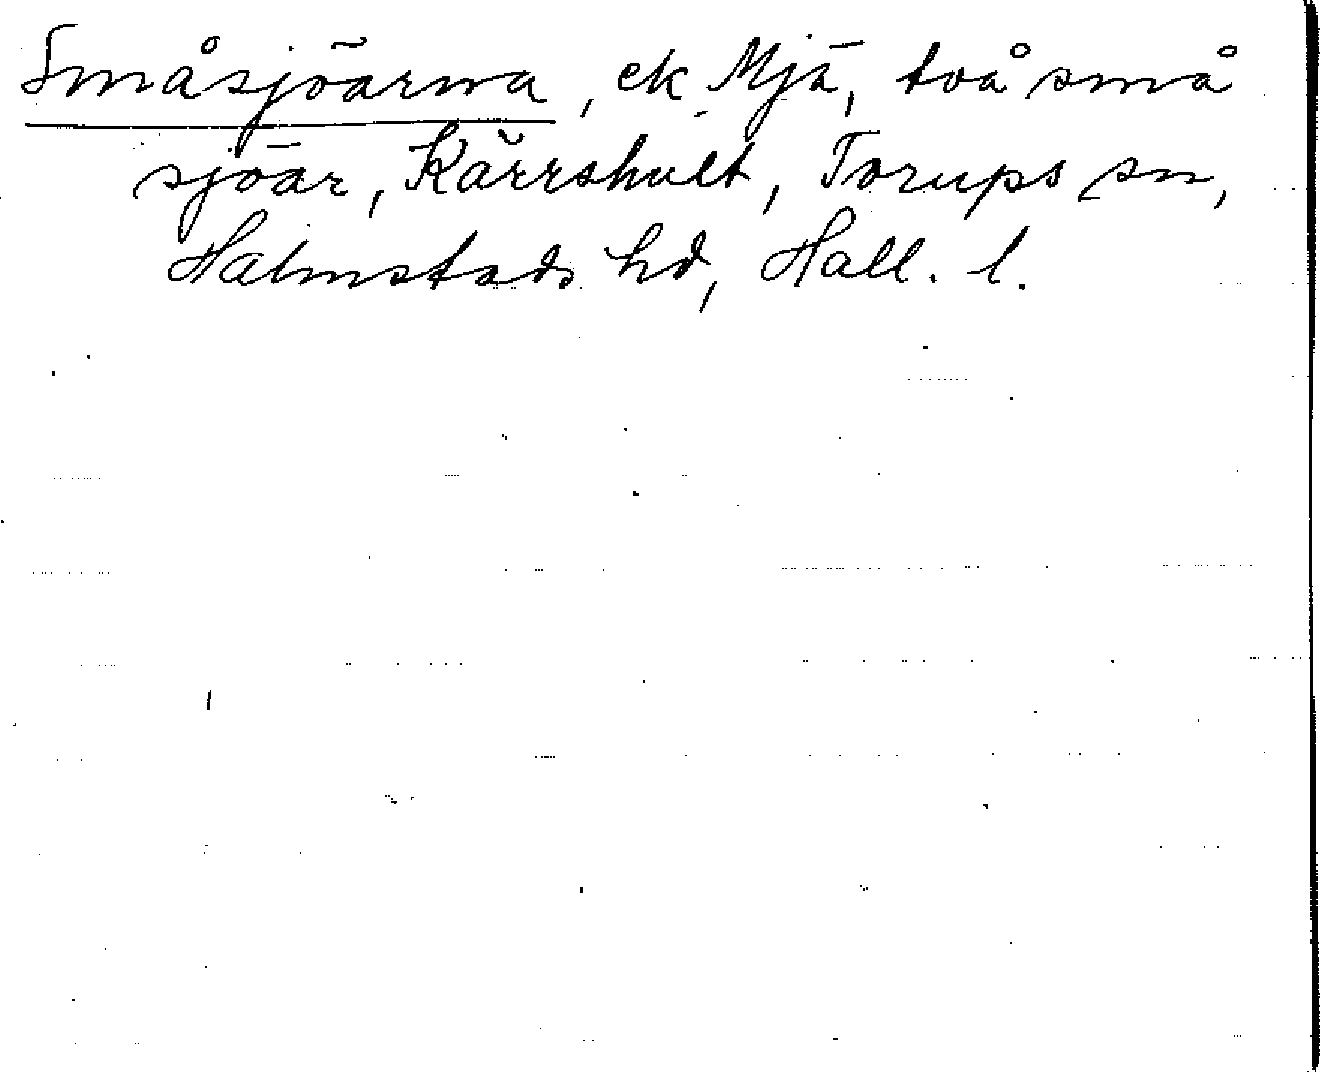 Småsjöarna, ek Mjä, två små
sjöar, Kärrshult, Torups sn,
Halmstads hd, Hall. l.